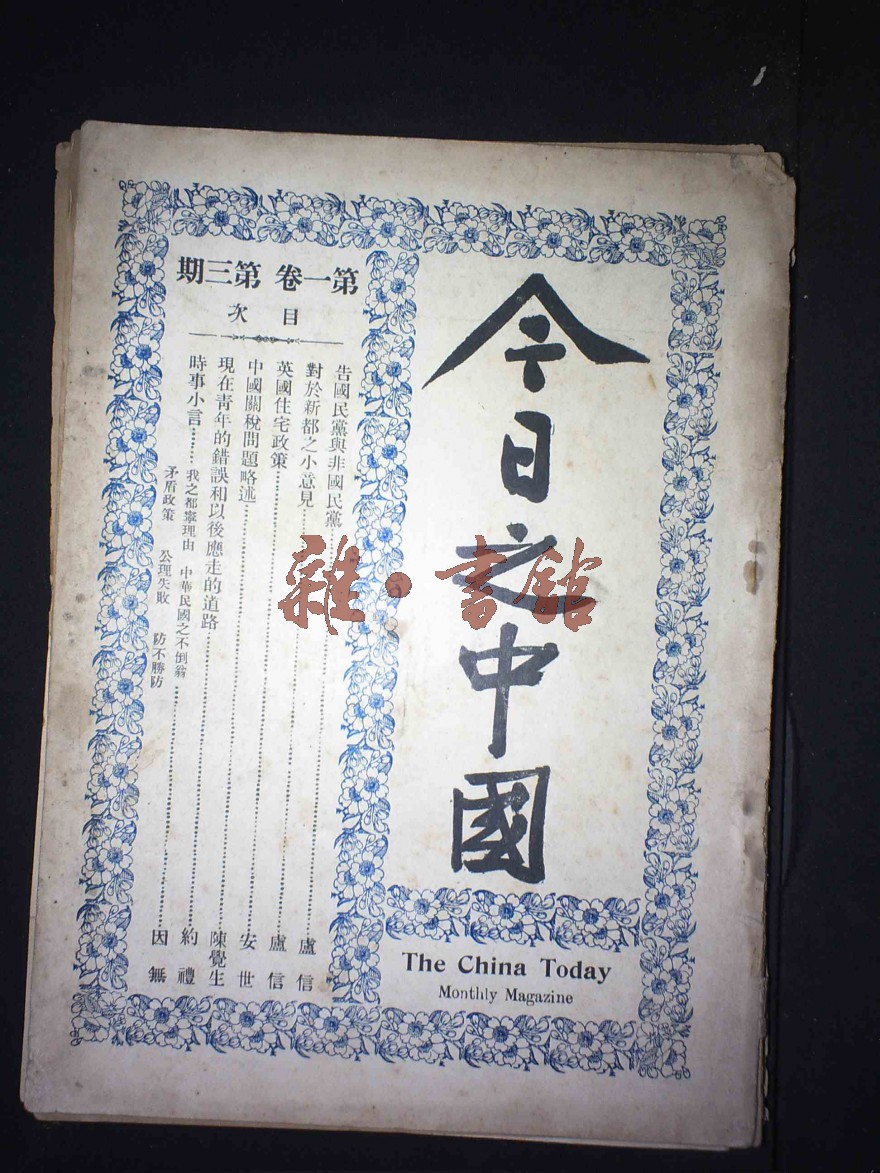 今日之中國
The China Today
Monthly Magazine
第一卷 第三期
目次
告國民黨與非國民黨 盧信
對於新都之小意見 盧信
英國住宅政策 安世
中國關稅問題略述 陳覺生
現在青年的錯誤和以後應走的道路 約禮
時事小言 因無
我之都寧理由 中華民國之不倒翁
矛盾政策 公理失敗 防不勝防
雜·書館